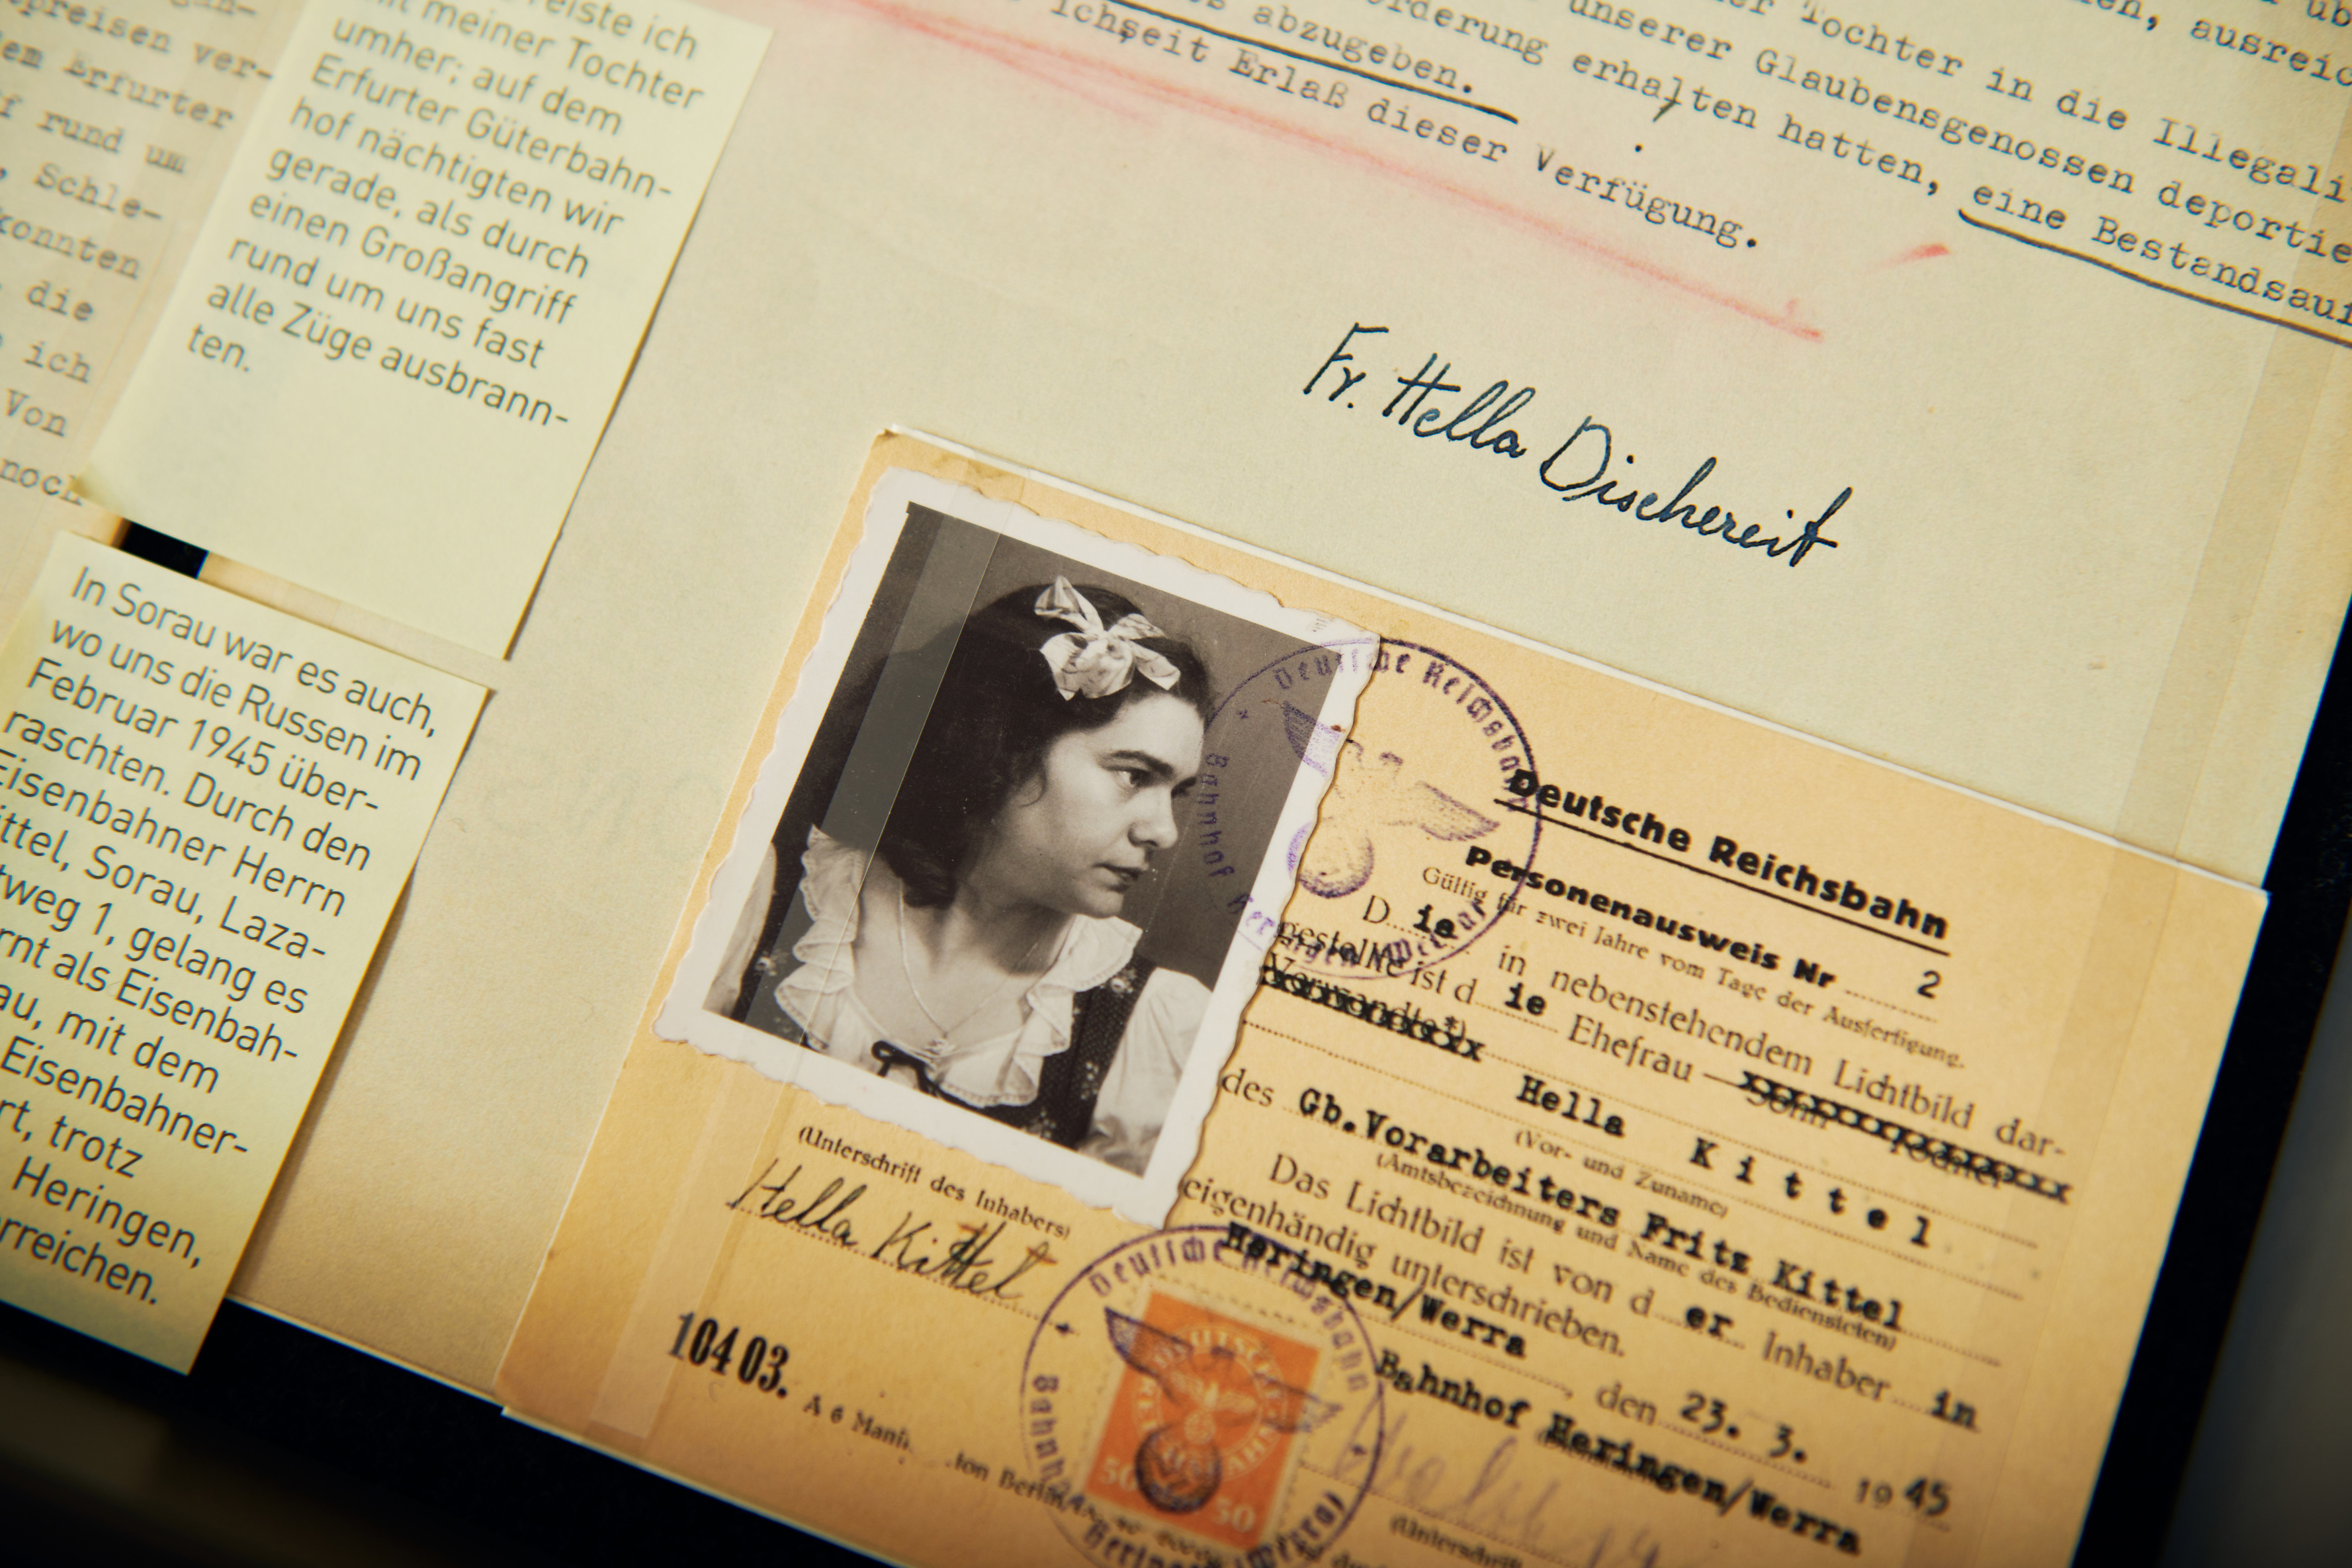 preisen ver-
em Erfurter
f rund um
, Schle-
konnten
die
ich
Von
noch
reiste ich
mit meiner Tochter
umher; auf dem
Erfurter Güterbahn-
hof nächtigten wir
gerade, als durch
einen Großangriff
rund um uns fast
alle Züge ausbrann-
ten.
In Sorau war es auch,
wo uns die Russen im
Februar 1945 über-
raschten. Durch den
Eisenbahner Herrn
ittel, Sorau, Laza-
tweg 1, gelang es
rnt als Eisenbah-
au, mit dem
Eisenbahner-
rt, trotz
Heringen,
rreichen.
Tochter in die Illegali
ausreic
unserer Glaubensgenossen deportie
orderung erhalten hatten, eine Bestandsauf
s abzugeben.
ich seit Erlaß dieser Verfügung.
Fr. Hella Dischereit
Deutsche Reichsbahn
Bahnhof Heringen (Werra)
Deutsche Reichsbahn
Personenausweis Nr 2
Gültig für zwei Jahre vom Tage der Ausfertigung.
D ie in nebenstehendem Lichtbild dar-
gestellte ist d ie Ehefrau Sohn Tochter
Verwandte*)
Hella Kittel
(Vor- und Zuname)
des Gb.Vorarbeiters Fritz Kittel
(Amtsbezeichnung und Name des Bediensteten)
Das Lichtbild ist von d er Inhaber in
eigenhändig unterschrieben.
Heringen/Werra, den 23. 3. 1945
Bahnhof Heringen/Werra
(Unterschrift
(Unterschrift des Inhabers)
Hella Kittel
104 03.
A 6
Berlin
Deutsche Reichsbahn
Bahnhof Heringen (Werra)
50 50